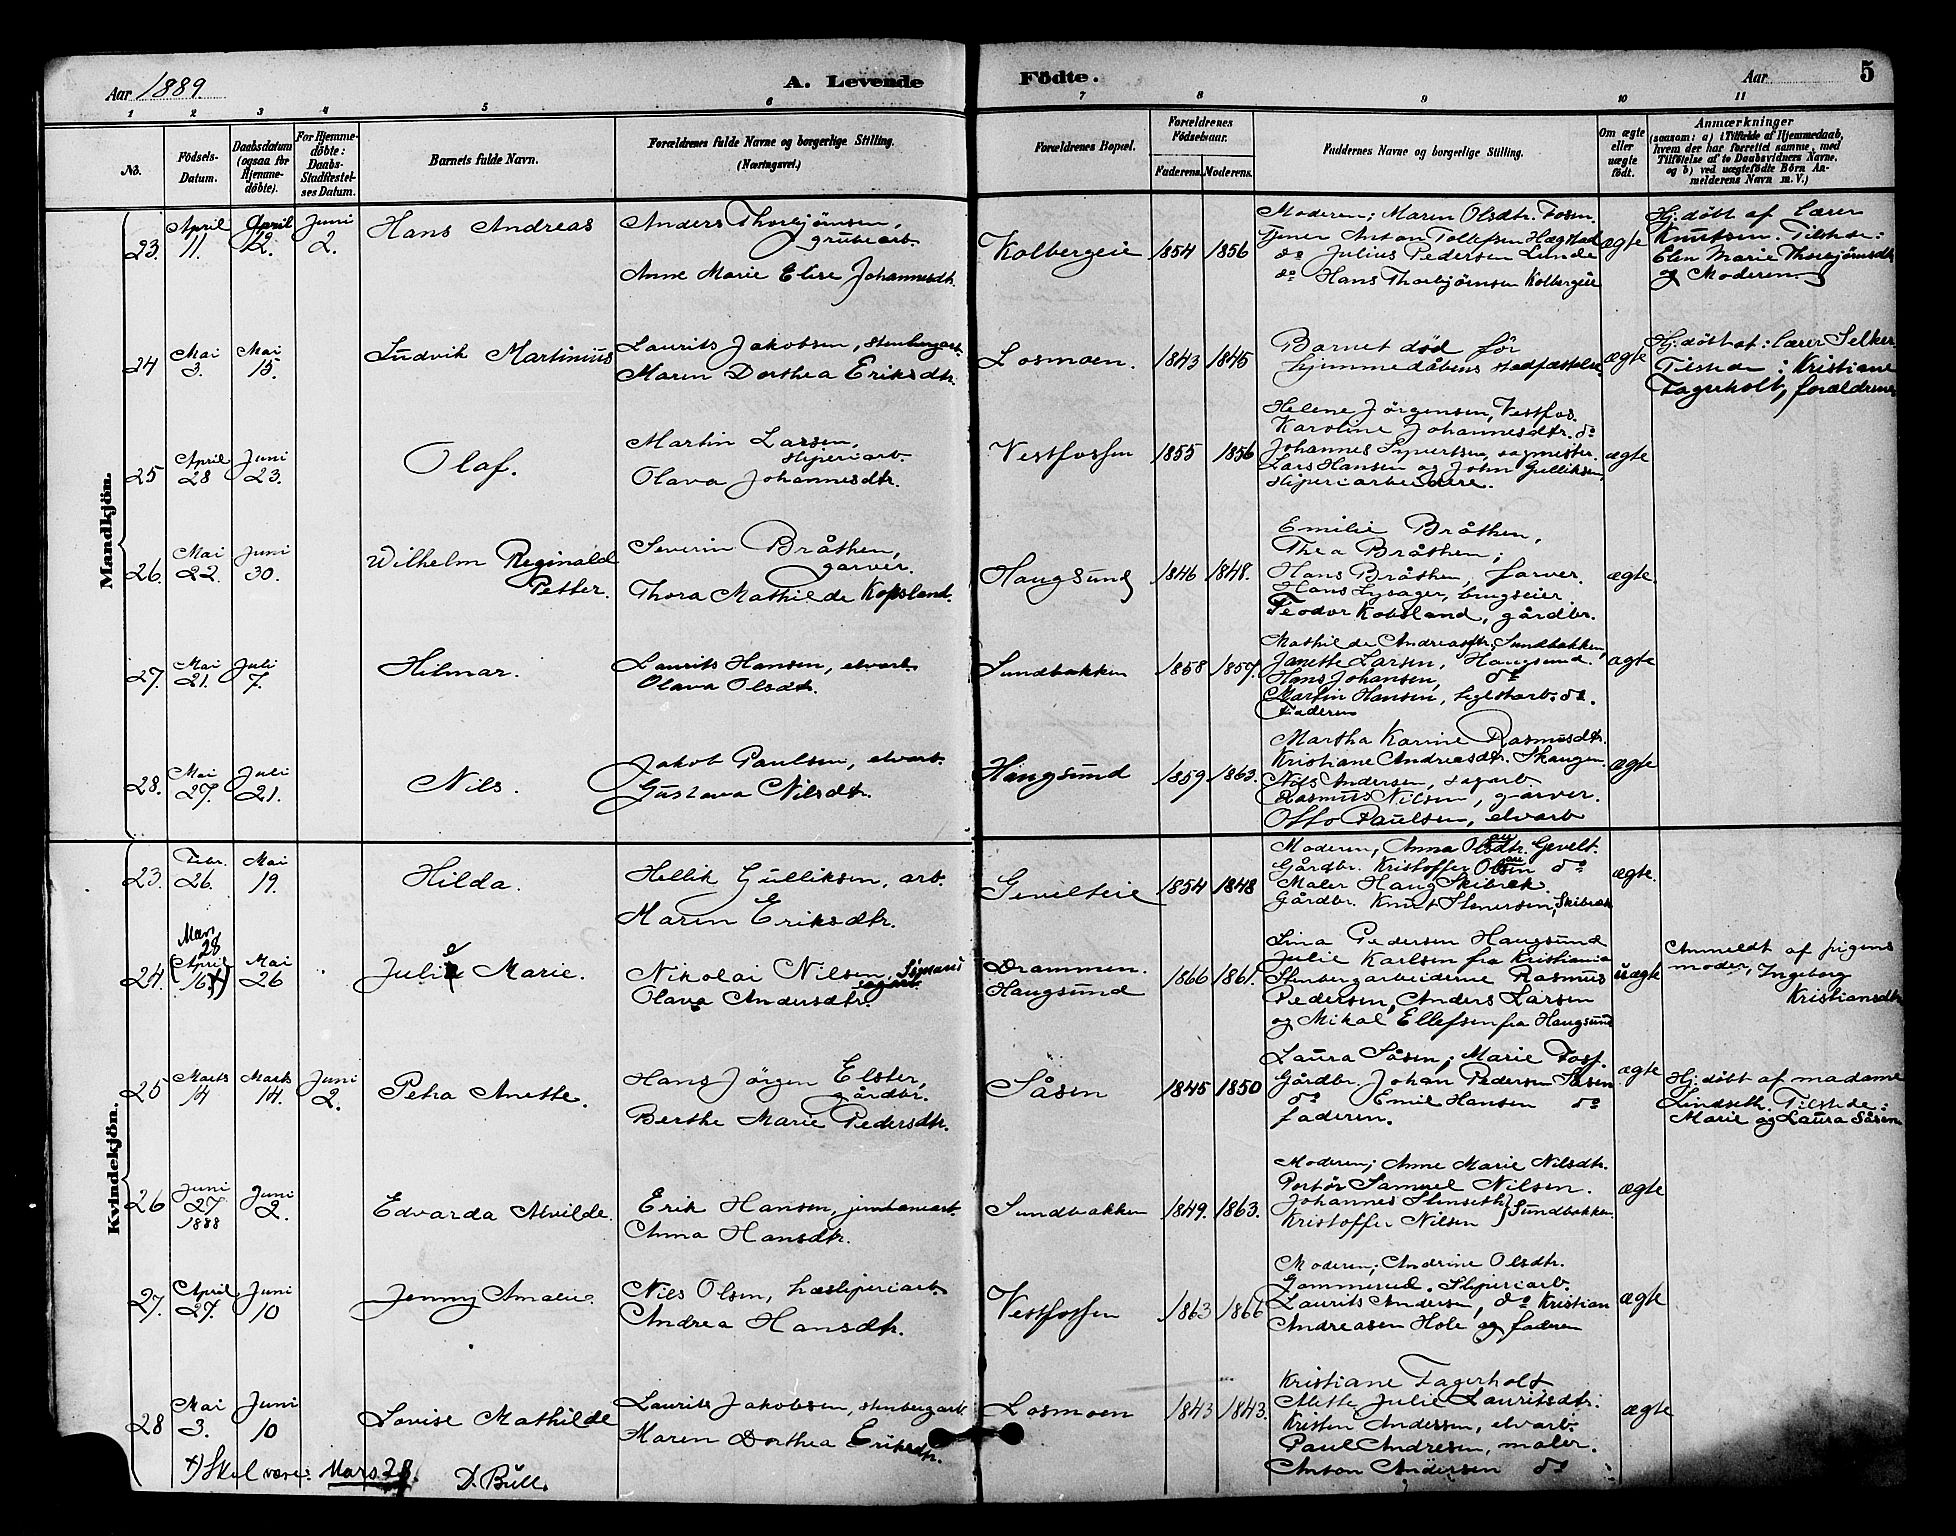 Aar 1889. A. Levende Födte. Aar 5
1 2 3 4 5 6 7 8 9 10 11
No. Födsels-Datum. Daabsdatum (ogsaa for Hjemme-döbte). For Hjemme-döbte: Daabs-Stadfæstel-ses Datum. Barnets fulde Navn. Forældrenes fulde Navne og borgerlige Stilling. (Næringsvei.) Forældrenes Bopæl. Forældrenes Födselsaar. Faderens. Moderens. Faddernes Navne og borgerlige Stilling. Om ægte eller uægte födt. Anmærkninger (saasom: a) i Tilfælde af Hjemmedaab, hvem der har forrettet samme, med Tilföielse af to Daabsvidners Navne, og b) ved uægtefödte Börn An-melderens Navn m. V.)
Mandkjön.
23. April 11. April 12. Juni 2. Hans Andreas
Anders Thorbjørnsen, grubearb.
Anne Marie Elise Johannesdtr.
Kolbergeie 1854 1856
Moderen; Maren Olsdtr. Fosen.
Tjener Anton Tollefsen Hægstad
do Julius Pedersen Lunde
do Hans Thorbjørnsen Kolbergeie
ægte
Hj. døbt af lærer
Knutsen. Tilstede:
Elen Marie Thorbjørnsdtr
og Moderen
24 Mai 3. Mai 15. Ludvik Martinius
Laurits Jakobsen, stenbergarb.
Maren Dorthea Eriksdtr.
Losmoen. 1843 1845
Barnet død før
hjemmedåbens stadfæstelse
ægte
Hj. døbt af: lærer Selker.
Tilstede: Kristiane
Fagerholt, forældrene
25 April 28 Juni 23. Olaf.
Martin Larsen, sliperiarb.
Olava Johannesdtr.
Vestfossen 1855 1856
Helene Jörgensen, Vestfos.
Karoline Johannesdtr. do
Johannes Syvertsen, sagmester.
Lars Hansen og John Gulliksen,
sliperiarbeidere.
ægte
26. Mai 22. Juni 30. Wilhelm Reginald Petter.
Severin Bråthen, garver.
Thora Mathilde Kopsland.
Haugsund 1846 1848.
Emilie Bråthen,
Thea Bråthen;
Hans Bråthen, farver.
Hans Lysager, brugseier.
Teodor Kobsland, gårdbr.
ægte.
27. Mai 21. Juli 7. Hilmar.
Laurits Hansen, elvarb.
Olava Olsdtr.
Sundbakken 1858 1857.
Mathilde Andreasdtr. Sundbakken,
Janette Larsen, Haugsund.
Hans Johansen, do
Martin Hansen, teglstarb. do.
Faderen
ægte
28. Mai 27. Juli 21. Nils.
Jakob Paulsen, elvarb.
Gustava Nilsdtr.
Haugsund 1859 1863.
Martha Karine Rasmusdtr.
Kristiane Andreasdtr. Skaugen.
Nils Andersen, sagarb
Rasmus Nilsen, garver.
Otto Paulsen, elvarb
ægte
Kvindekjön.
23. Febr. 26. Mai 19. Hilda.
Hellik Gulliksen, arb.
Maren Eriksdtr.
Gevelteie 1854 1848
Moderen, Anna Olsdtr. Gevelt.
Gårdbr. Kristoffer Olsen do
Maler Haug Skibrek
Gårdbr. Knut Stenersen, Skibrek
ægte.
24. Mars 28 (April 16 x) Mai 26 Julie Marie.
Nikolai Nilsen, Sjømand
Olava Andersdtr.
Drammen.
Haugsund 1866 1861.
Lina Pedersen Haugsund
Julie Karlsen fra Kristiania
Stenbergarbeiderne Rasmus
Pedersen, Anders Larsen
og Mikal Ellefsen fra Haugsund
uægte
Anmeldt af pigens
moder, Ingeborg
Kristiansdtr
25 Marts 14 Marts 14. Juni 2. Petra Anette.
Hans Jörgen Elster, gårdbr.
Berthe Marie Pedersdtr.
Såsen 1845 1850
Laura Såsen; Marie Fosf.
Gårdbr. Johan Pedersen Såsen
do Emil Hansen do
faderen.
ægte
Hj. døbt af madame
Lindseth. Tilstede:
Marie og Laura Såsen
26 Juni 27 1888 Juni 2. Edvarda Alvilde.
Erik Hansen, jernbanearb.
Anna Hansdtr.
Sundbakken 1849. 1863.
Moderen; Anne Marie Nilsdtr.
Portör Samuel Nilsen.
Johannes Stenseth
Kristoffer Nilsen } Sundbakken
ægte
27. April 27. Juni 10 Jenny Amalie.
Nils Olsen, træsliperiarb.
Andrea Hansdtr.
Vestfossen 1863 1866
Moderen; Andrine Olsdtr.
Gommerud. Sliperiarb.
Laurits Andersen, do Kristian
Andreasen Hole og faderen
ægte
28 Mai 3. Juni 10 Lovise Mathilde
Laurits Jakobsen, stenbergarb.
Maren Dorthea Eriksdtr.
Losmoen 1843 1843.
Kristiane Fagerholt
Mette Julie Lauritsdtr.
Kristen Andersen, elvarb.
Paul Andresen, maler.
Anton Andersen do
ægte
x) Skal være: Mars 28. D. Bull.